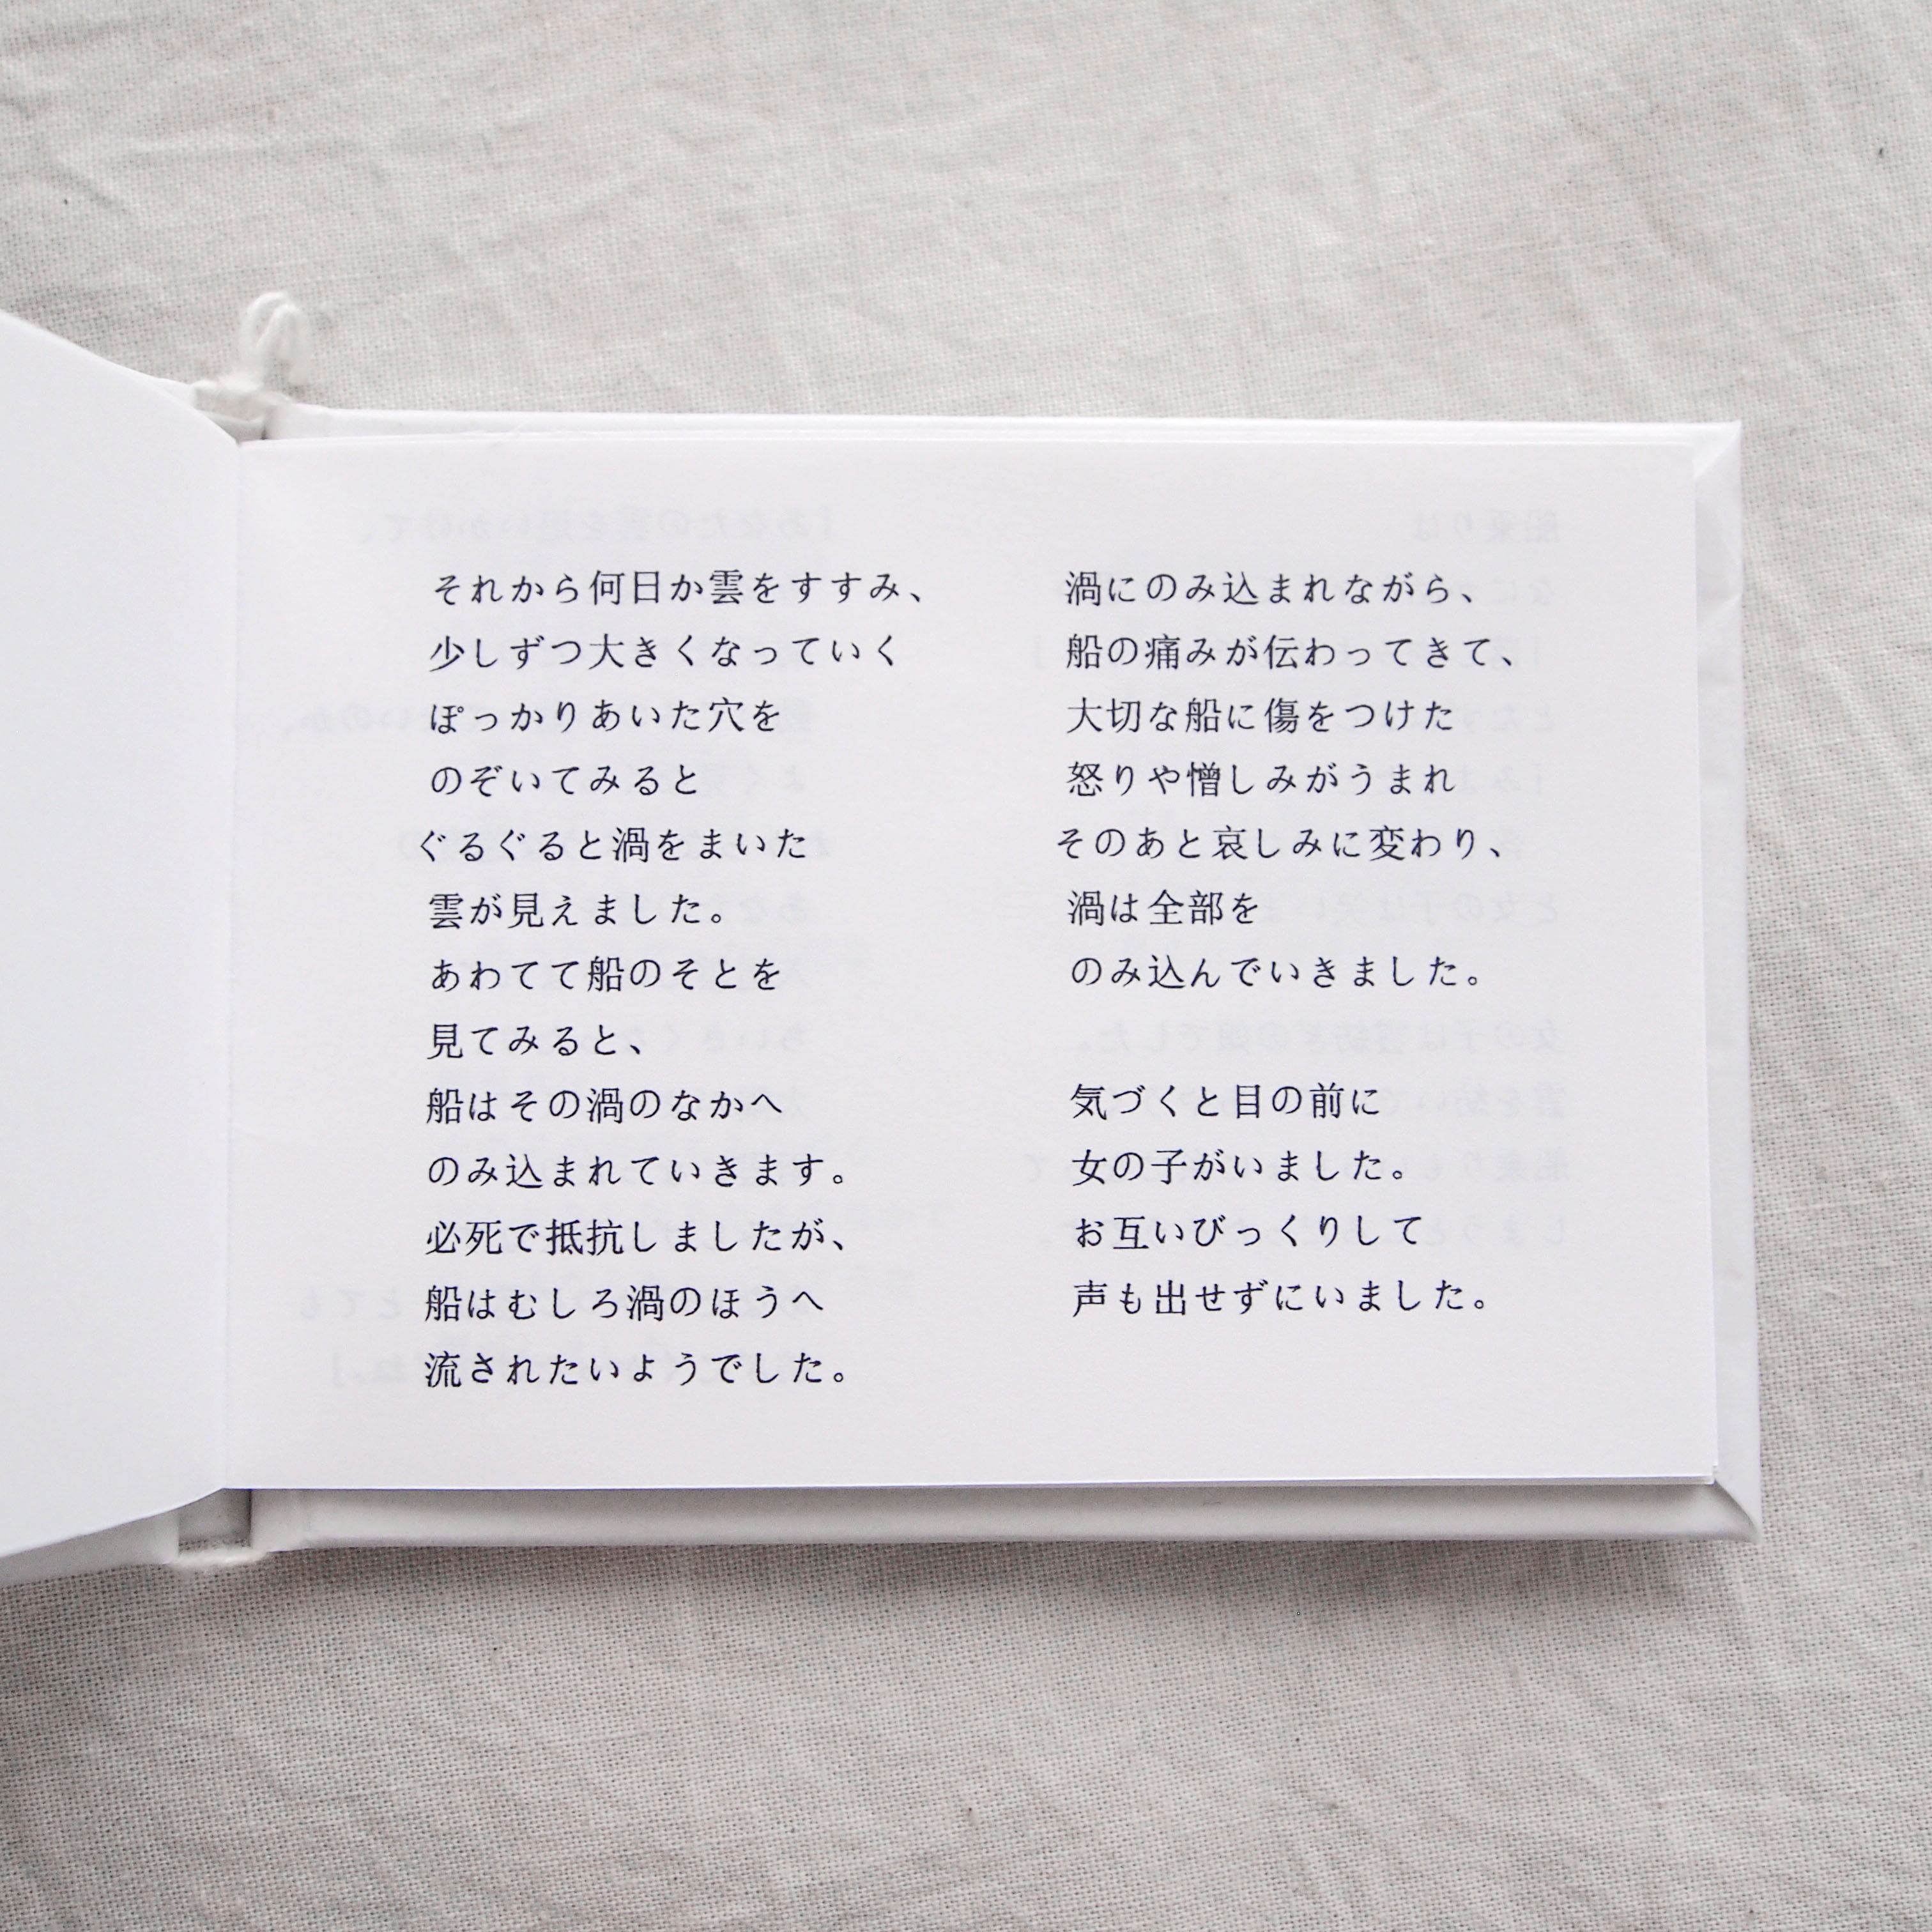 それから何日か雲をすすみ、
少しずつ大きくなっていく
ぽっかりあいた穴を
のぞいてみると
ぐるぐると渦をまいた
雲が見えました。
あわてて船のそとを
見てみると、
船はその渦のなかへ
のみ込まれていきます。
必死で抵抗しましたが、
船はむしろ渦のほうへ
流されたいようでした。
渦にのみ込まれながら、
船の痛みが伝わってきて、
大切な船に傷をつけた
怒りや憎しみがうまれ
そのあと哀しみに変わり、
渦は全部を
のみ込んでいきました。
気づくと目の前に
女の子がいました。
お互いびっくりして
声も出せずにいました。